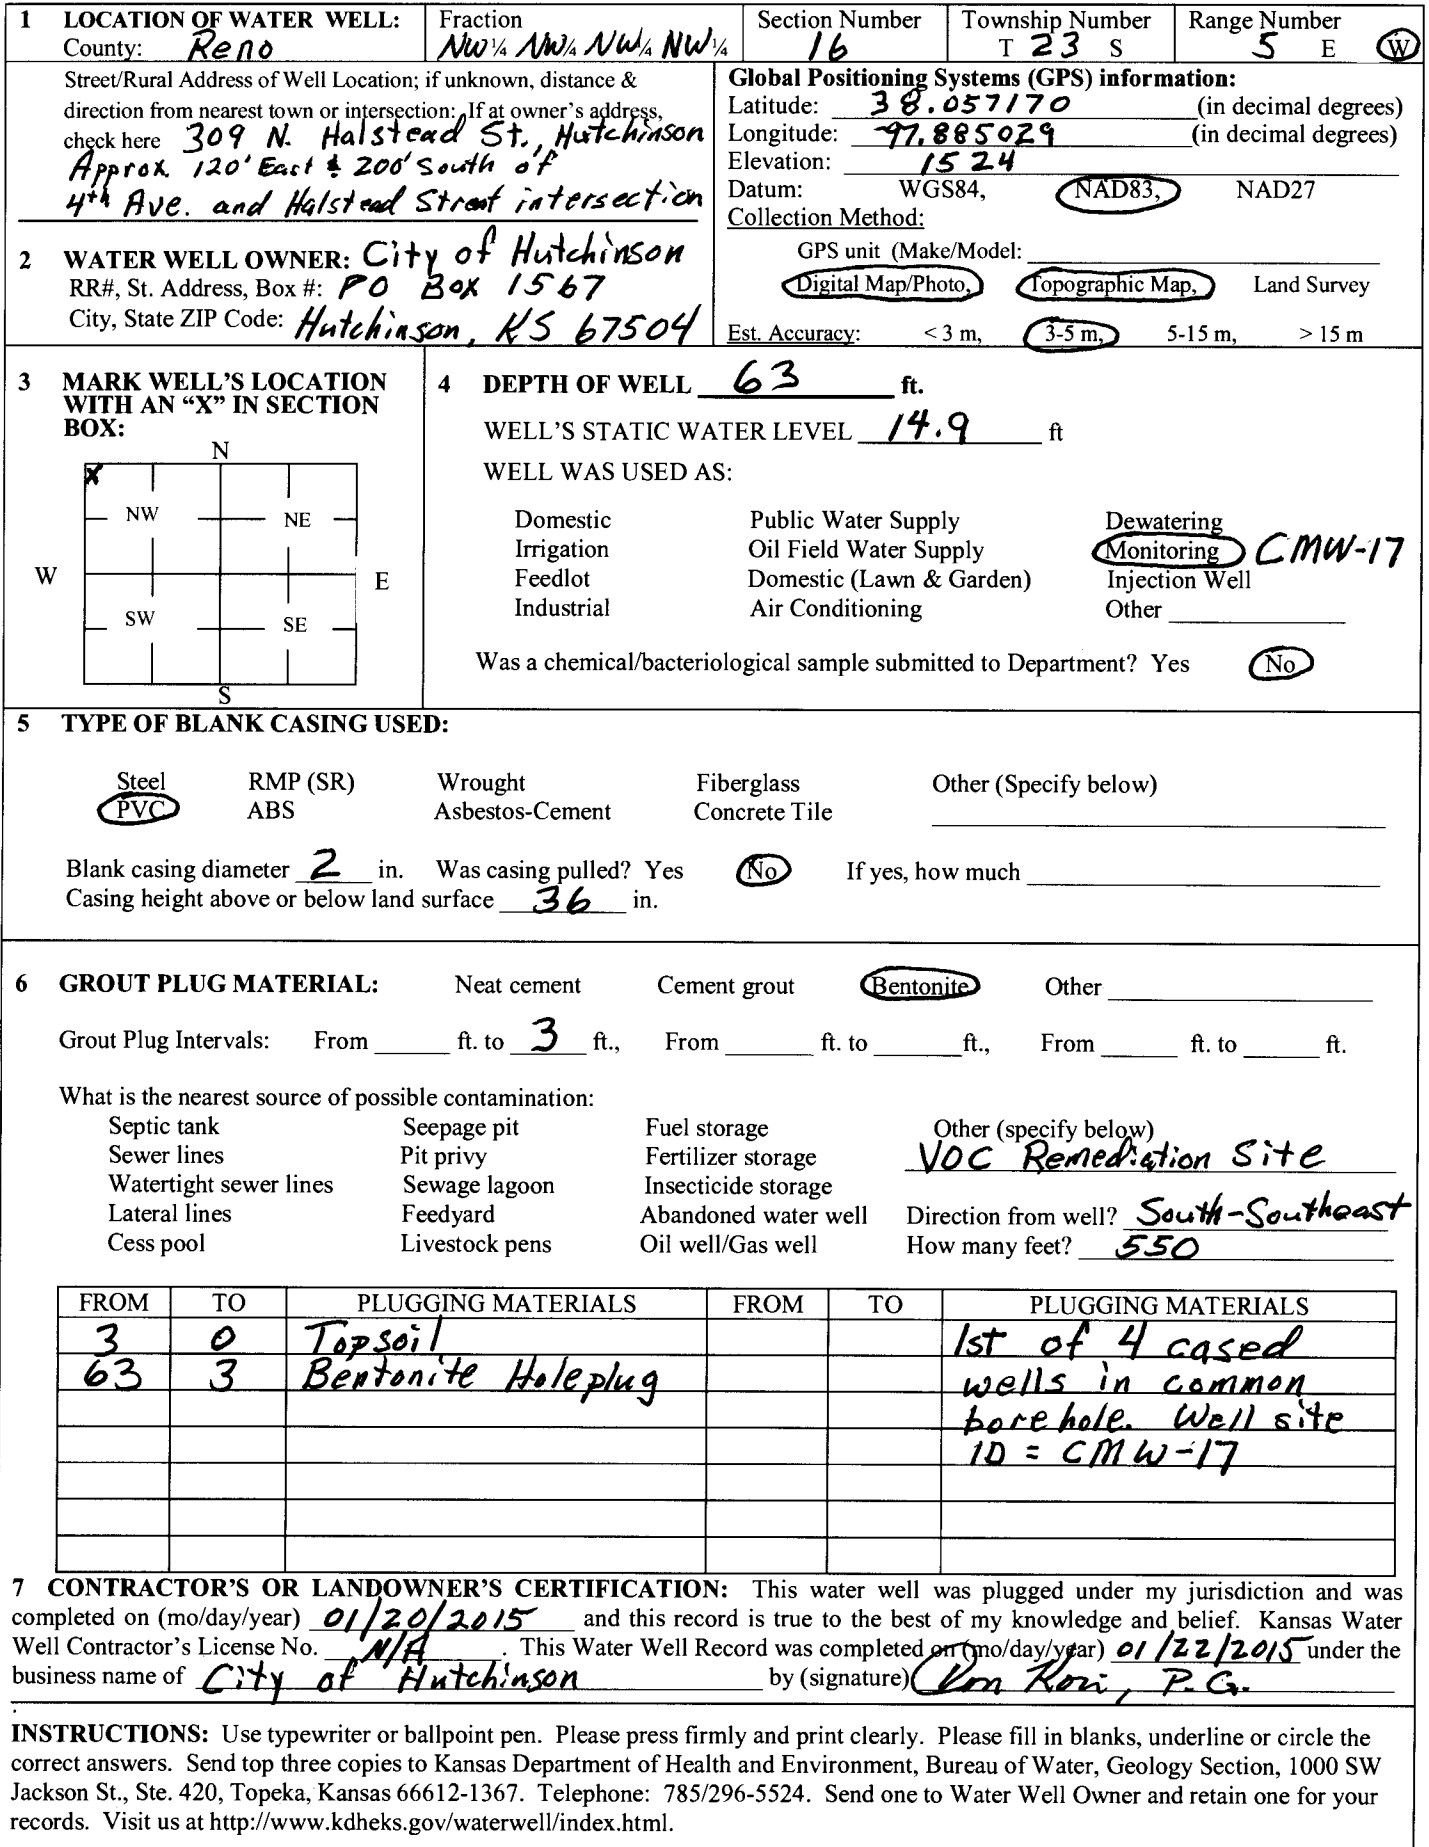 1 LOCATION OF WATER WELL: Fraction Section Number Township Number Range Number
County: Reno NW¼ NW¼ NW¼ NW¼ 16 T 23 S 5 E W
Street/Rural Address of Well Location; if unknown, distance &
direction from nearest town or intersection: If at owner's address,
check here 309 N. Halstead St., Hutchinson
Approx. 120' East & 200' South of
4th Ave. and Halstead Street intersection
Global Positioning Systems (GPS) information:
Latitude: 38.057170 (in decimal degrees)
Longitude: -97.885029 (in decimal degrees)
Elevation: 1524
Datum: WGS84, NAD83, NAD27
Collection Method:
GPS unit (Make/Model:
Digital Map/Photo, Topographic Map, Land Survey
Est. Accuracy: < 3 m, 3-5 m, 5-15 m, > 15 m
2 WATER WELL OWNER: City of Hutchinson
RR#, St. Address, Box #: PO Box 1567
City, State ZIP Code: Hutchinson, KS 67504
3 MARK WELL'S LOCATION
WITH AN "X" IN SECTION
BOX:
N
X
NW NE
W E
SW SE
S
4 DEPTH OF WELL 63 ft.
WELL'S STATIC WATER LEVEL 14.9 ft
WELL WAS USED AS:
Domestic Public Water Supply Dewatering
Irrigation Oil Field Water Supply Monitoring CMW-17
Feedlot Domestic (Lawn & Garden) Injection Well
Industrial Air Conditioning Other
Was a chemical/bacteriological sample submitted to Department? Yes No
5 TYPE OF BLANK CASING USED:
Steel RMP (SR) Wrought Fiberglass Other (Specify below)
PVC ABS Asbestos-Cement Concrete Tile
Blank casing diameter 2 in. Was casing pulled? Yes No If yes, how much
Casing height above or below land surface 36 in.
6 GROUT PLUG MATERIAL: Neat cement Cement grout Bentonite Other
Grout Plug Intervals: From ft. to 3 ft., From ft. to ft., From ft. to ft.
What is the nearest source of possible contamination:
Septic tank Seepage pit Fuel storage Other (specify below)
Sewer lines Pit privy Fertilizer storage VOC Remediation Site
Watertight sewer lines Sewage lagoon Insecticide storage
Lateral lines Feedyard Abandoned water well Direction from well? South-Southeast
Cess pool Livestock pens Oil well/Gas well How many feet? 550
FROM TO PLUGGING MATERIALS FROM TO PLUGGING MATERIALS
3 0 Topsoil 1st of 4 cased
63 3 Bentonite Holeplug wells in common
borehole. Well site
ID = CMW-17
7 CONTRACTOR'S OR LANDOWNER'S CERTIFICATION: This water well was plugged under my jurisdiction and was
completed on (mo/day/year) 01/20/2015 and this record is true to the best of my knowledge and belief. Kansas Water
Well Contractor's License No. N/A. This Water Well Record was completed on (mo/day/year) 01/22/2015 under the
business name of City of Hutchinson by (signature) P.G.
INSTRUCTIONS: Use typewriter or ballpoint pen. Please press firmly and print clearly. Please fill in blanks, underline or circle the
correct answers. Send top three copies to Kansas Department of Health and Environment, Bureau of Water, Geology Section, 1000 SW
Jackson St., Ste. 420, Topeka, Kansas 66612-1367. Telephone: 785/296-5524. Send one to Water Well Owner and retain one for your
records. Visit us at http://www.kdheks.gov/waterwell/index.html.